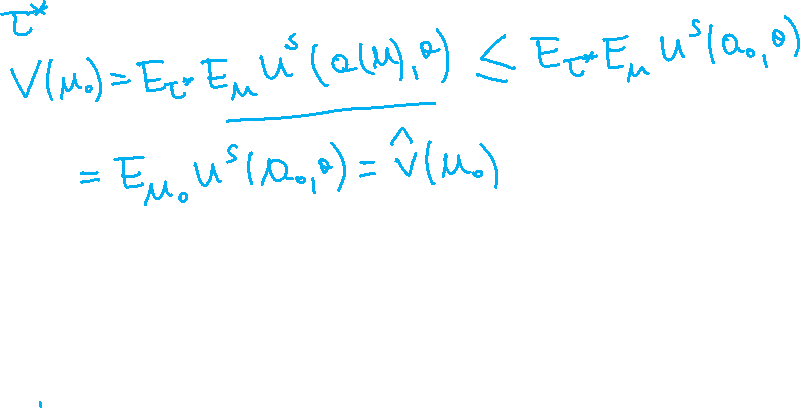 τ*
V(μ₀) = E_τ* E_μ u^s(a(μ), θ) ≤ E_τ* E_μ u^s(a₀, θ)
= E_μ₀ u^s(a₀, θ) = v̂(μ₀)